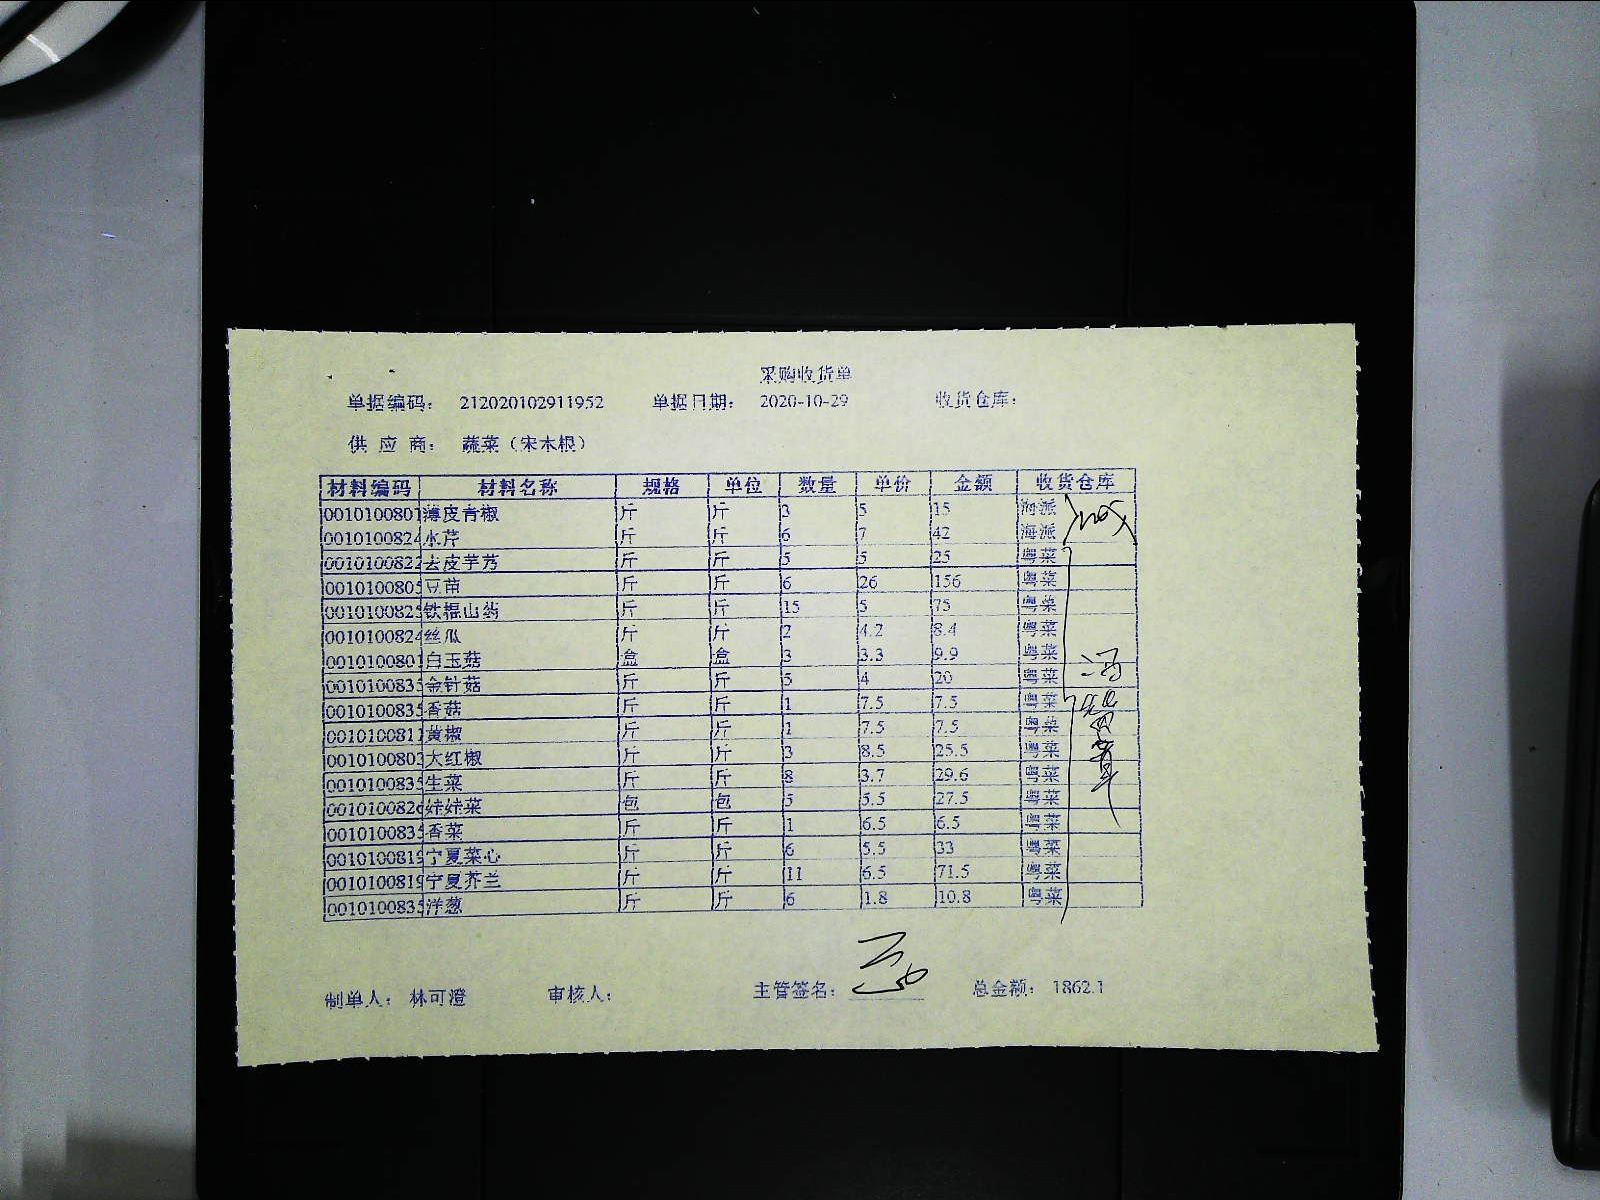 采购收货单
单据编码： 212020102911952 单据日期： 2020-10-29 收货仓库：
供 应 商： 蔬菜（宋木根）
材料编码 材料名称 规格 单位 数量 单价 金额 收货仓库
0010100801 薄皮青椒 斤 斤 3 5 15 海派
0010100824 水芹 斤 斤 6 7 42 海派
0010100822 去皮芋艿 斤 斤 5 5 25 粤菜
0010100805 豆苗 斤 斤 6 26 156 粤菜
0010100825 铁棍山药 斤 斤 15 5 75 粤菜
0010100824 丝瓜 斤 斤 2 4.2 8.4 粤菜
0010100801 白玉菇 盒 盒 3 3.3 9.9 粤菜
0010100835 金针菇 斤 斤 5 4 20 粤菜
0010100835 香菇 斤 斤 1 7.5 7.5 粤菜
0010100811 黄椒 斤 斤 1 7.5 7.5 粤菜
0010100803 大红椒 斤 斤 3 8.5 25.5 粤菜
0010100835 生菜 斤 斤 8 3.7 29.6 粤菜
0010100826 娃娃菜 包 包 5 5.5 27.5 粤菜
0010100835 香菜 斤 斤 1 6.5 6.5 粤菜
0010100819 宁夏菜心 斤 斤 6 5.5 33 粤菜
0010100819 宁夏芥兰 斤 斤 11 6.5 71.5 粤菜
0010100835 洋葱 斤 斤 6 1.8 10.8 粤菜
制单人： 林可澄 审核人： 主管签名： 总金额： 1862.1